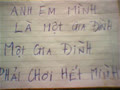 ANH EM MÌNH
LÀ MỘT GIA ĐÌNH
MỘT GIA ĐÌNH
PHẢI CHƠI HẾT MÌNH